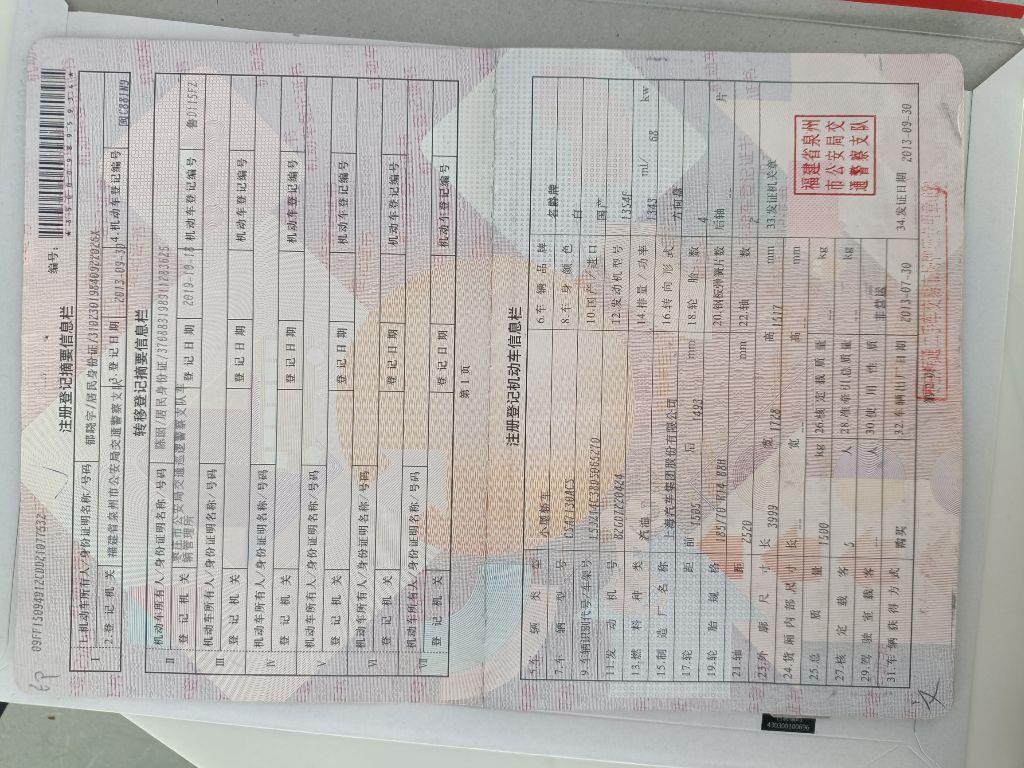 注册登记摘要信息栏
编号:
1.机动车所有人/身份证明名称/号码 郁晓宇/居民身份证/31023019840922026X
2.登记机关 福建省泉州市公安局交通警察支队 3.登记日期 2013-09-30 4.机动车登记编号 闽C881N9
转移登记摘要信息栏
Ⅱ 机动车所有人/身份证明名称/号码 居民身份证/370883198911283625
登记机关 枣庄市公安局交通巡逻警察支队车辆管理所 登记日期 2019-10-18 机动车登记编号 鲁D115FZ
Ⅲ 机动车所有人/身份证明名称/号码
登记机关 登记日期 机动车登记编号
Ⅳ 机动车所有人/身份证明名称/号码
登记机关 登记日期 机动车登记编号
Ⅴ 机动车所有人/身份证明名称/号码
登记机关 登记日期 机动车登记编号
Ⅵ 机动车所有人/身份证明名称/号码
登记机关 登记日期 机动车登记编号
Ⅶ 机动车所有人/身份证明名称/号码
登记机关 登记日期 机动车登记编号
第1页
注册登记机动车信息栏
5.车辆类型 小型轿车 6.车辆品牌 名爵牌
7.车辆型号 8.车身颜色 白
9.车辆识别代号/车架号 10.国产/进口 国产
11.发动机号 12.发动机型号 15S4F
13.燃料种类 汽油 14.排量/功率 1343 ml/ 68 kw
15.制造厂名称 上海汽车集团股份有限公司 16.转向形式 方向盘
17.轮距 前 1505 后 1493 mm 18.轮胎数 4
19.轮胎规格 185/70 R14 88H 20.钢板弹簧片数 后轴 -- 片
21.轴距 2520 mm 22.轴数 2
23.外廓尺寸 长 3999 宽 1728 高 1517 mm 33.发证机关章
24.货厢内部尺寸 长 -- 宽 -- 高 -- mm
福建省泉州
市公安局交
通警察支队
25.总质量 1500 kg 26.核定载质量 -- kg
27.核定载客 5 人 28.准牵引总质量 -- kg
29.驾驶室载客 -- 人 30.使用性质 非营运
31.车辆获得方式 购买 32.车辆出厂日期 2013-07-30 34.发证日期 2013-09-30